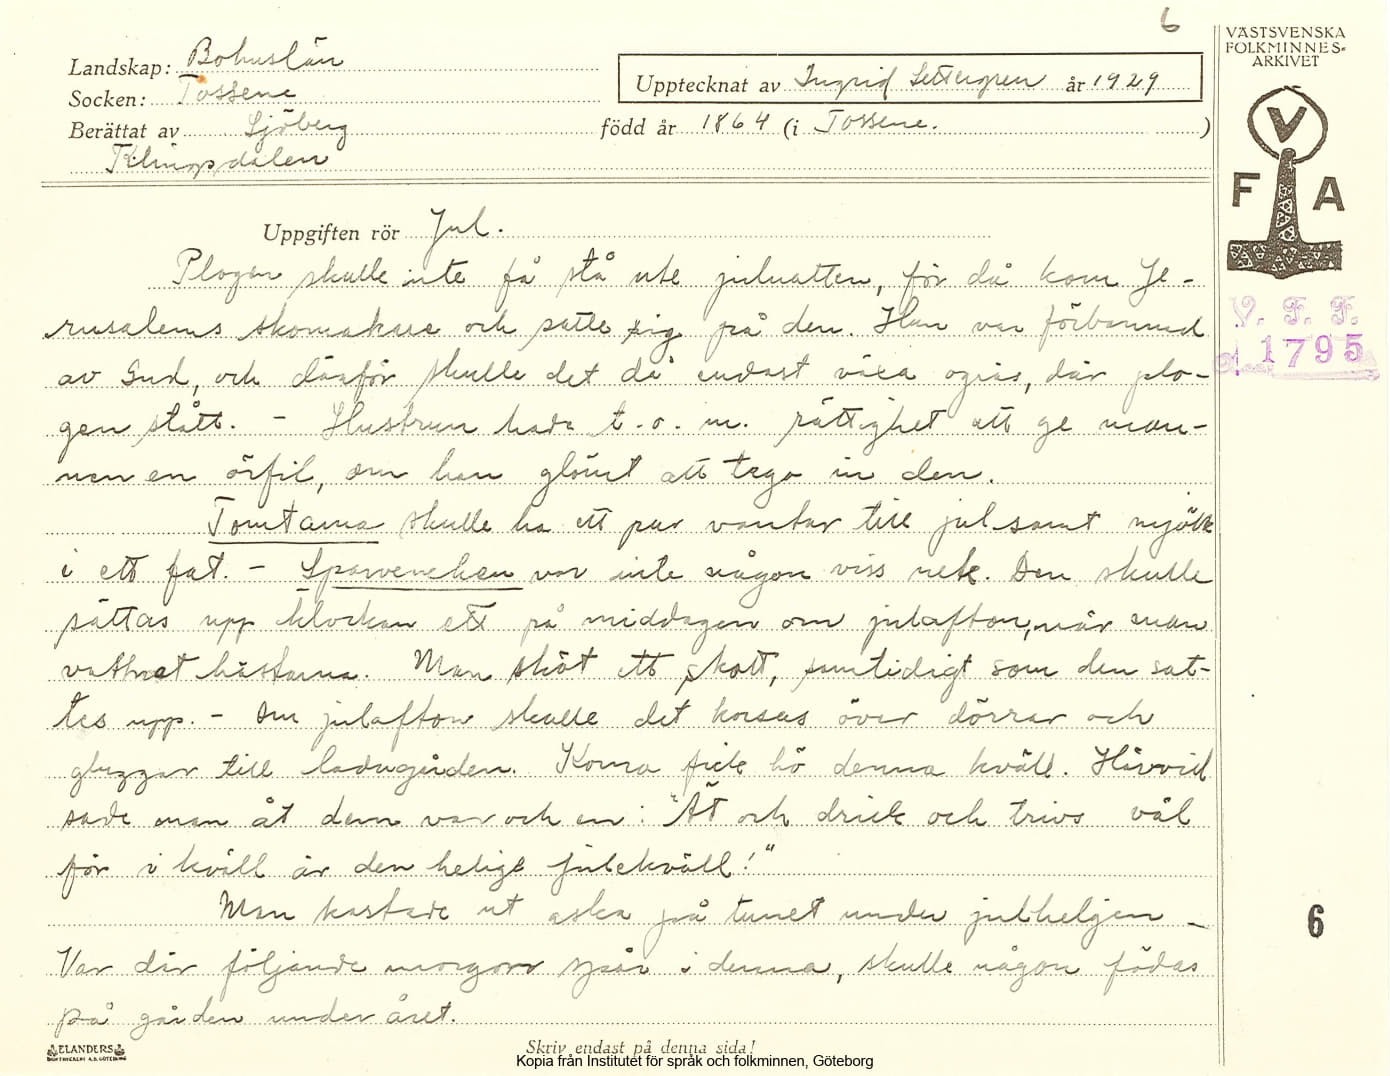 6
VÄSTSVENSKA
FOLKMINNES-
ARKIVET
Landskap: Bohuslän
Upptecknat av Ingrid Settergren år 1929
Socken: Tossene
Berättat av Sjöberg född år 1864 (i Tossene.)
Klingsdalen
V
F A
Uppgiften rör Jul.
Plogen skulle inte få stå ute julnatten, för då kom Je-
rusalems skomakare och satte sig på den. Han var förbannad
av Gud, och därför skulle det då endast växa ogräs, där plo-
gen stått. - Hustrun hade t.o.m. rättighet att ge man-
nen en örfil, om han glömt att taga in den.
Tomtarna skulle ha ett par vantar till jul samt mjölk
i ett fat. - Sparvneken var inte någon viss nek. Den skulle
sättas upp klockan ett på middagen om julafton, när man
vattnat hästarna. Man sköt ett skott, samtidigt som den sat-
tes upp. - Om julafton skulle det korsas över dörrar och
gluggar till ladugården. Korna fick hö denna kväll. Härvid
sade man åt dem var och en: "Ät och drick och trivs väl
för i kväll är den helige julekväll!"
Man kastade ut aska på tunet under julhelgen -
Var där följande morgon spår i denna, skulle någon födas
på gården under året.
V. F. F.
1795
6
ELANDERS
BOKTRYCKERI A.B. GÖTEBORG
Skriv endast på denna sida!
Kopia från Institutet för språk och folkminnen, Göteborg